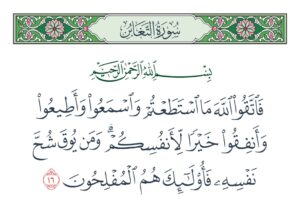 سُورَةُ التَّغَابُنِ
بِسْمِ اللَّهِ الرَّحْمَٰنِ الرَّحِيمِ
فَاتَّقُوا اللَّهَ مَا اسْتَطَعْتُمْ وَاسْمَعُوا وَأَطِيعُوا
وَأَنفِقُوا خَيْرًا لِّأَنفُسِكُمْ ۗ وَمَن يُوقَ شُحَّ
نَفْسِهِ فَأُولَٰئِكَ هُمُ الْمُفْلِحُونَ ١٦